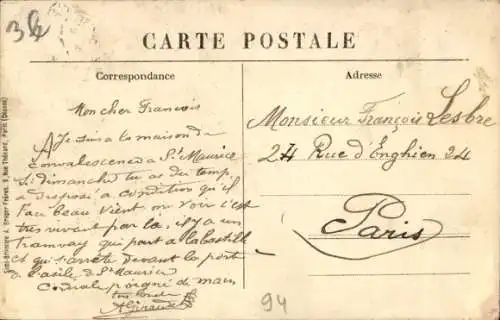 3
CARTE POSTALE
Correspondance
Adresse
Mon cher François
Je suis a la maison de
Convalescence a St Maurice
Si dimanche tu as du temp,
a disposé a condition qu'il
fau beau vient me voir c'est
tres vivant par la, il y a un
Tramway qui part a la bastille
et qui s'arrete devant la porte
de l'asile de St Maurice
Cordiale poigné de main
ton
A Giraud
Monsieur François Lesbre
24 Rue d'Enghien 24
Paris
94
Simi-Bromure A. Breger Frères, 9, Rue Thénard, Paris